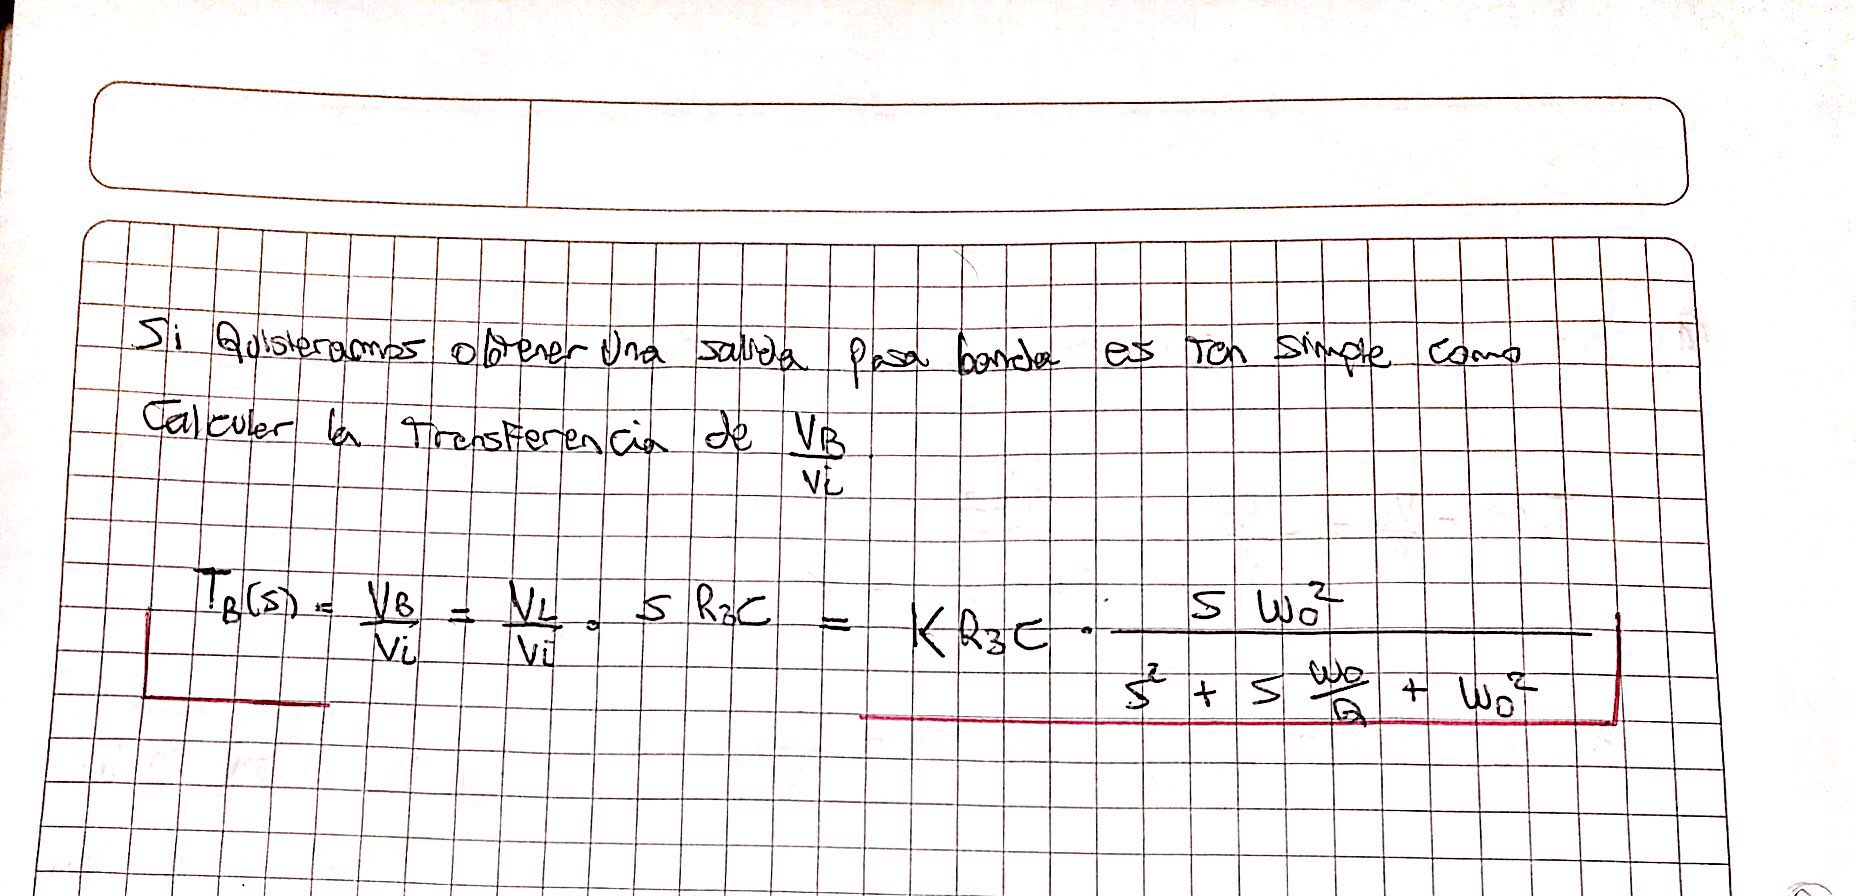 Si Quisieramos obtener Una salida pasa banda es Tan simple como
Calcular la Transferencia de VB/Vi
TB(S) = VB/Vi = VL/Vi . S R3C = K R3C . S ω0² / (S² + S ω0/Q + ω0²)